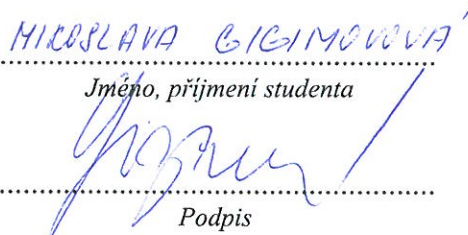 MIROSLAVA GIGIMOVOVÁ
Jméno, příjmení studenta
Podpis